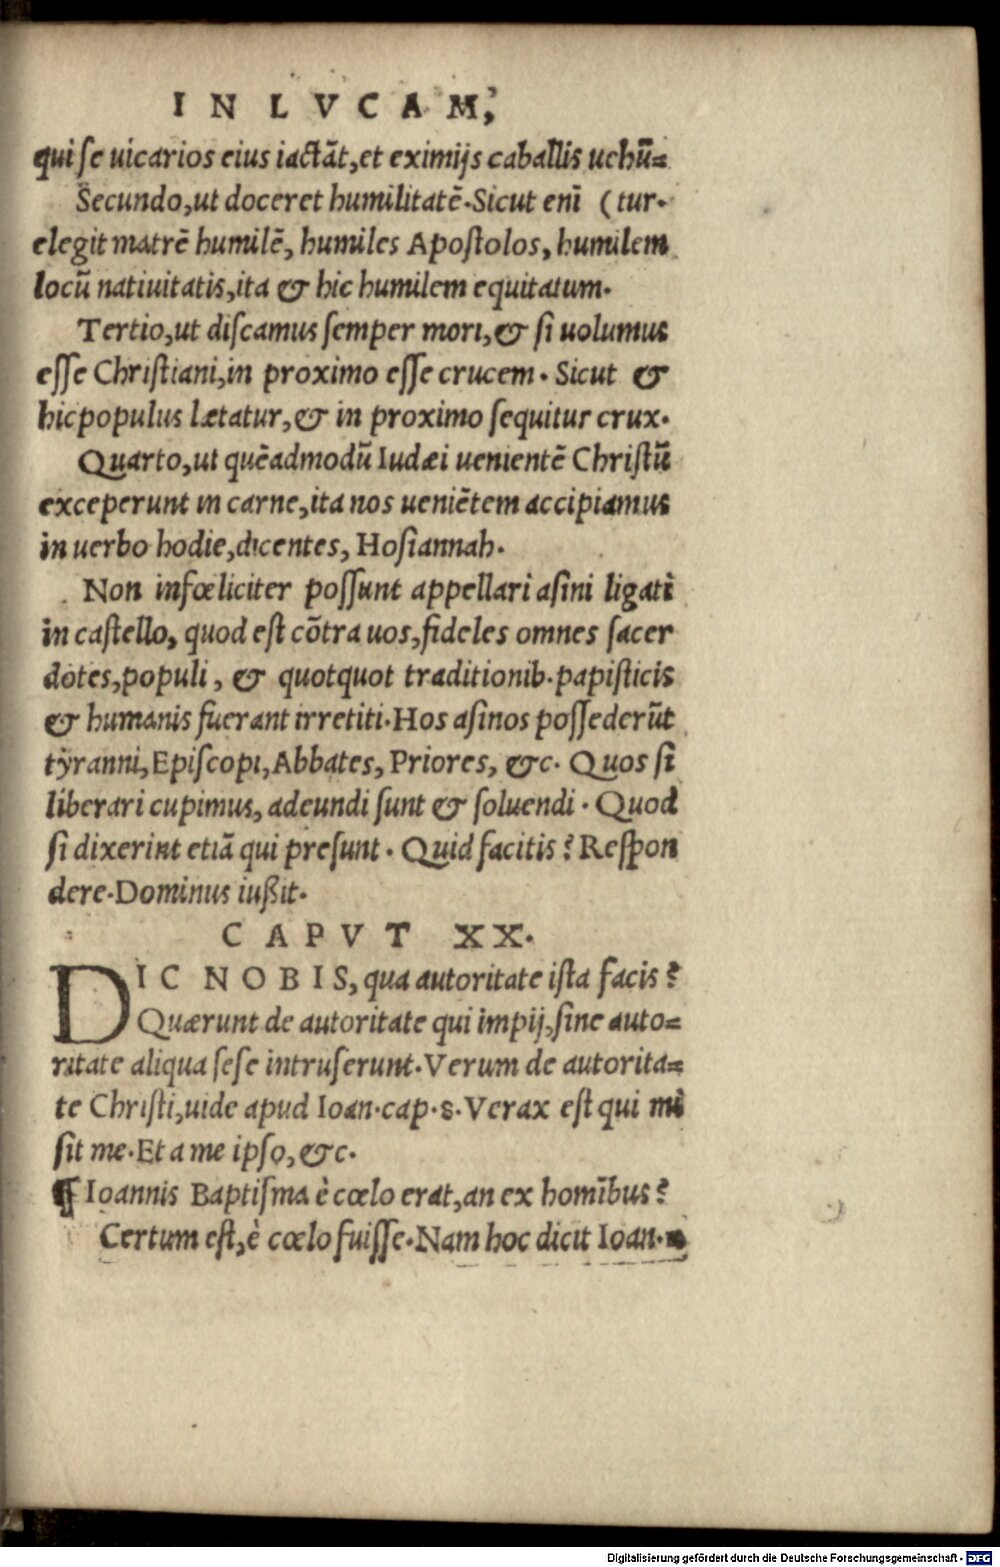 IN LVCAM,
qui se uicarios eius iactãt, et eximijs caballis uehũ=
Secundo, ut doceret humilitatẽ. Sicut enĩ (tur.
elegit matrẽ humilẽ, humiles Apostolos, humilem
locũ natiuitatis, ita & hic humilem equitatum.
Tertio, ut discamus semper mori, & si uolumus
esse Christiani, in proximo esse crucem. Sicut &
hic populus lætatur, & in proximo sequitur crux.
Quarto, ut quẽadmodũ Iudæi uenientẽ Christũ
exceperunt in carne, ita nos ueniẽtem accipiamus
in uerbo hodie, dicentes, Hosiannah.
Non infœliciter possunt appellari asini ligati
in castello, quod est cõtra uos, fideles omnes sacer
dotes, populi, & quotquot traditionib. papisticis
& humanis fuerant irretiti. Hos asinos possederũt
tyranni, Episcopi, Abbates, Priores, &c. Quos si
liberari cupimus, adeundi sunt & soluendi. Quod
si dixerint etiã qui presunt. Quid facitis? Respon
dere. Dominus iußit.
CAPVT XX.
DIC NOBIS, qua autoritate ista facis?
Quærunt de autoritate qui impij, sine auto=
ritate aliqua sese intruserunt. Verum de autorita=
te Christi, uide apud Ioan. cap. 8. Verax est qui mi
sit me. Et a me ipso, &c.
¶ Ioannis Baptisma è cœlo erat, an ex homĩbus?
Certum est, è cœlo fuisse. Nam hoc dicit Ioan.
Digitalisierung gefördert durch die Deutsche Forschungsgemeinschaft - DFG